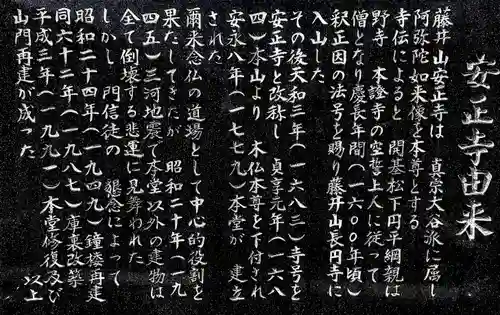 安正寺由来
藤井山安正寺は 真宗大谷派に属し
阿弥陀如来像を本尊とする
寺伝によると 開基松下円平綱親は
野寺 本證寺の空誓上人に従って
僧となり慶長年間（一六〇〇年頃）
釈正因の法号を賜り藤井山長円寺に
入山した
その後天和三年（一六八三）寺号を
安正寺と改称し 貞享元年（一六八
四）本山より 木仏本尊を下付され
安永八年（一七七九）本堂が 建立
された
爾来念仏の道場として中心的役割を
果たしてきたが 昭和二十年（一九
四五）三河地震で本堂以外の建物は
全て倒壊する悲運に見舞われた
しかし 門信徒の 懇念によって
昭和二十四年（一九四九）鐘楼再建
同六十二年（一九八七）庫裏改築
平成三年（一九九一）本堂修復及び
山門再建が成った 以上